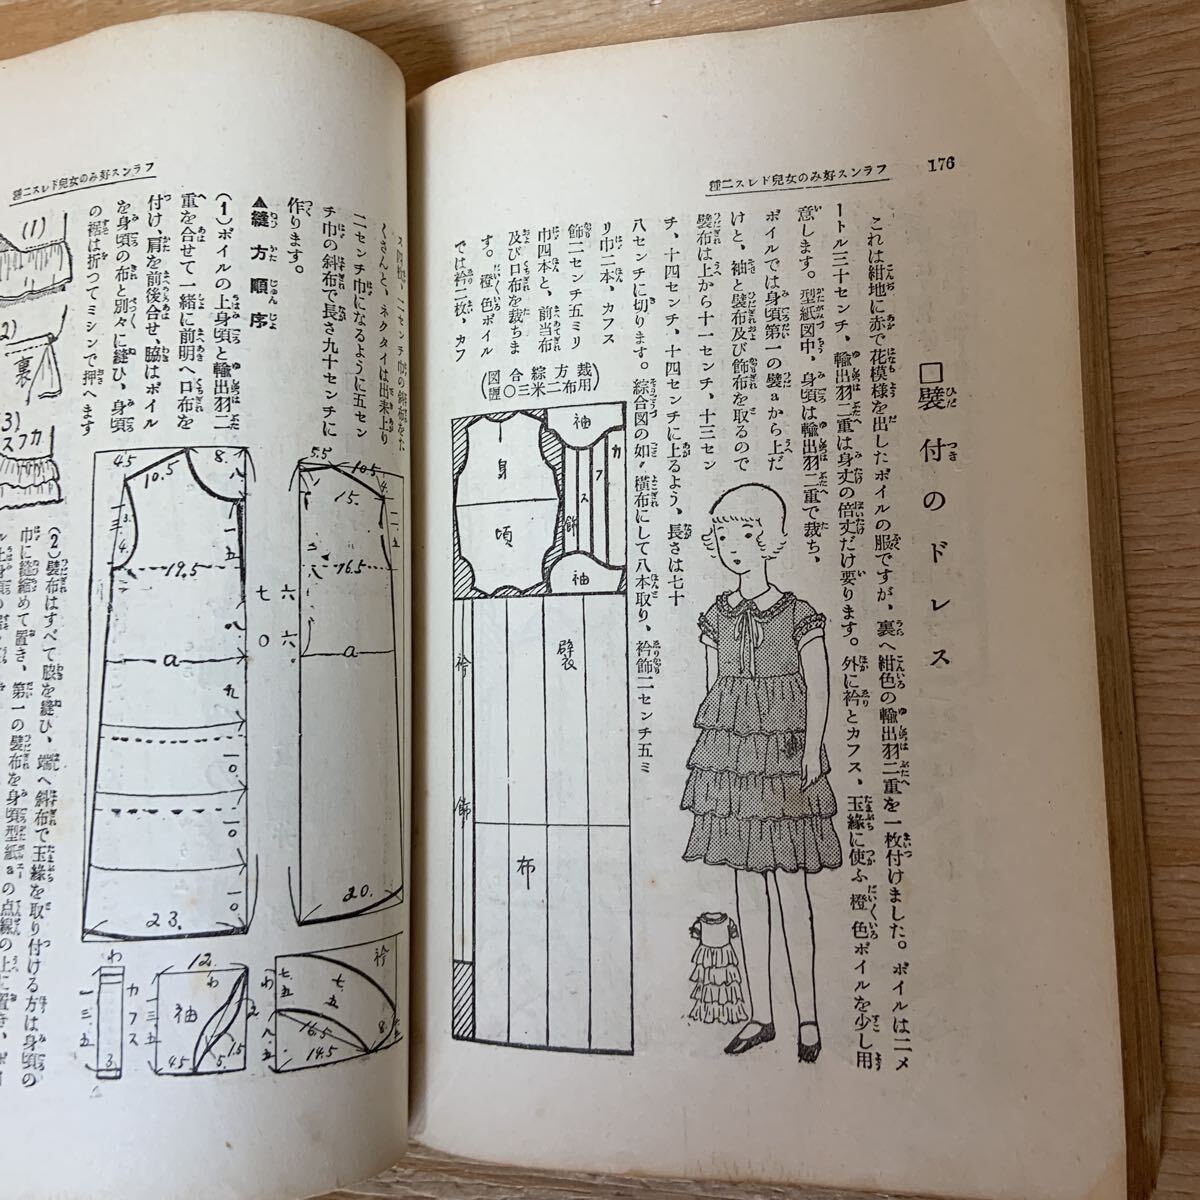 176
フランス好みの女兒ドレス二種
□襞付のドレス
これは紺地に赤で花模様を出したボイルの服ですが、裏へ紺色の輸出羽二重を一枚付けました。ボイルは二メ
ートル三十センチ、輸出羽二重は身丈の倍丈だけ要ります。外に衿とカフス、玉緣に使ふ橙色ボイルを少し用
意します。型紙図中、身頃は輸出羽二重で裁ち、
ボイルでは身頃第一の襞aから上だ
けと、袖と襞布及び飾布を取るので
襞布は上から十一センチ、十三セン
チ、十四センチ、十四センチに上るよう、長さは七十
八センチに切ります。綜合図の如く横布にして八本取り、衿飾二センチ五ミ
リ巾二本、カフス
飾二センチ五ミリ
巾四本と、前当布
及び口布を裁ちま
す。橙色ボイル
では衿二枚、カフ
用布三〇
袖
カフス
飾
身
頃
袖
襞
布
衿
飾
フランス好みの女兒ドレス二種
ス四枚、二センチ巾の斜布をた
くさんと、ネクタイは出來上り
二センチ巾になるように五セン
チ巾の斜布で長さ九十センチに
作ります。
▲縫方順序
(1)ボイルの上身頃と輸出羽二
重を合せて一緒に前明へ口布を
付け、肩を前後合せ、脇はボイル
を身頃の布と別々に縫ひ、身頃
の裾は折つてミシンで押へます
(2)襞布はすべて脇を縫ひ、端へ斜布で玉緣を取り付ける方は身頃の
巾に縫縮めて置き、第一の襞布を身頃型紙aの点線の上に置き、
(1)
裏
カフス
4.5
10.5
8.
19.5
a
23.
七〇
5.5
10.5
15.
16.5
a
20.
六六.
わ
カフス
一三.五
3
12.
わ
袖
4.5
5.
1.5
2
衿
七.五
七.五
16.5
14.5
8.